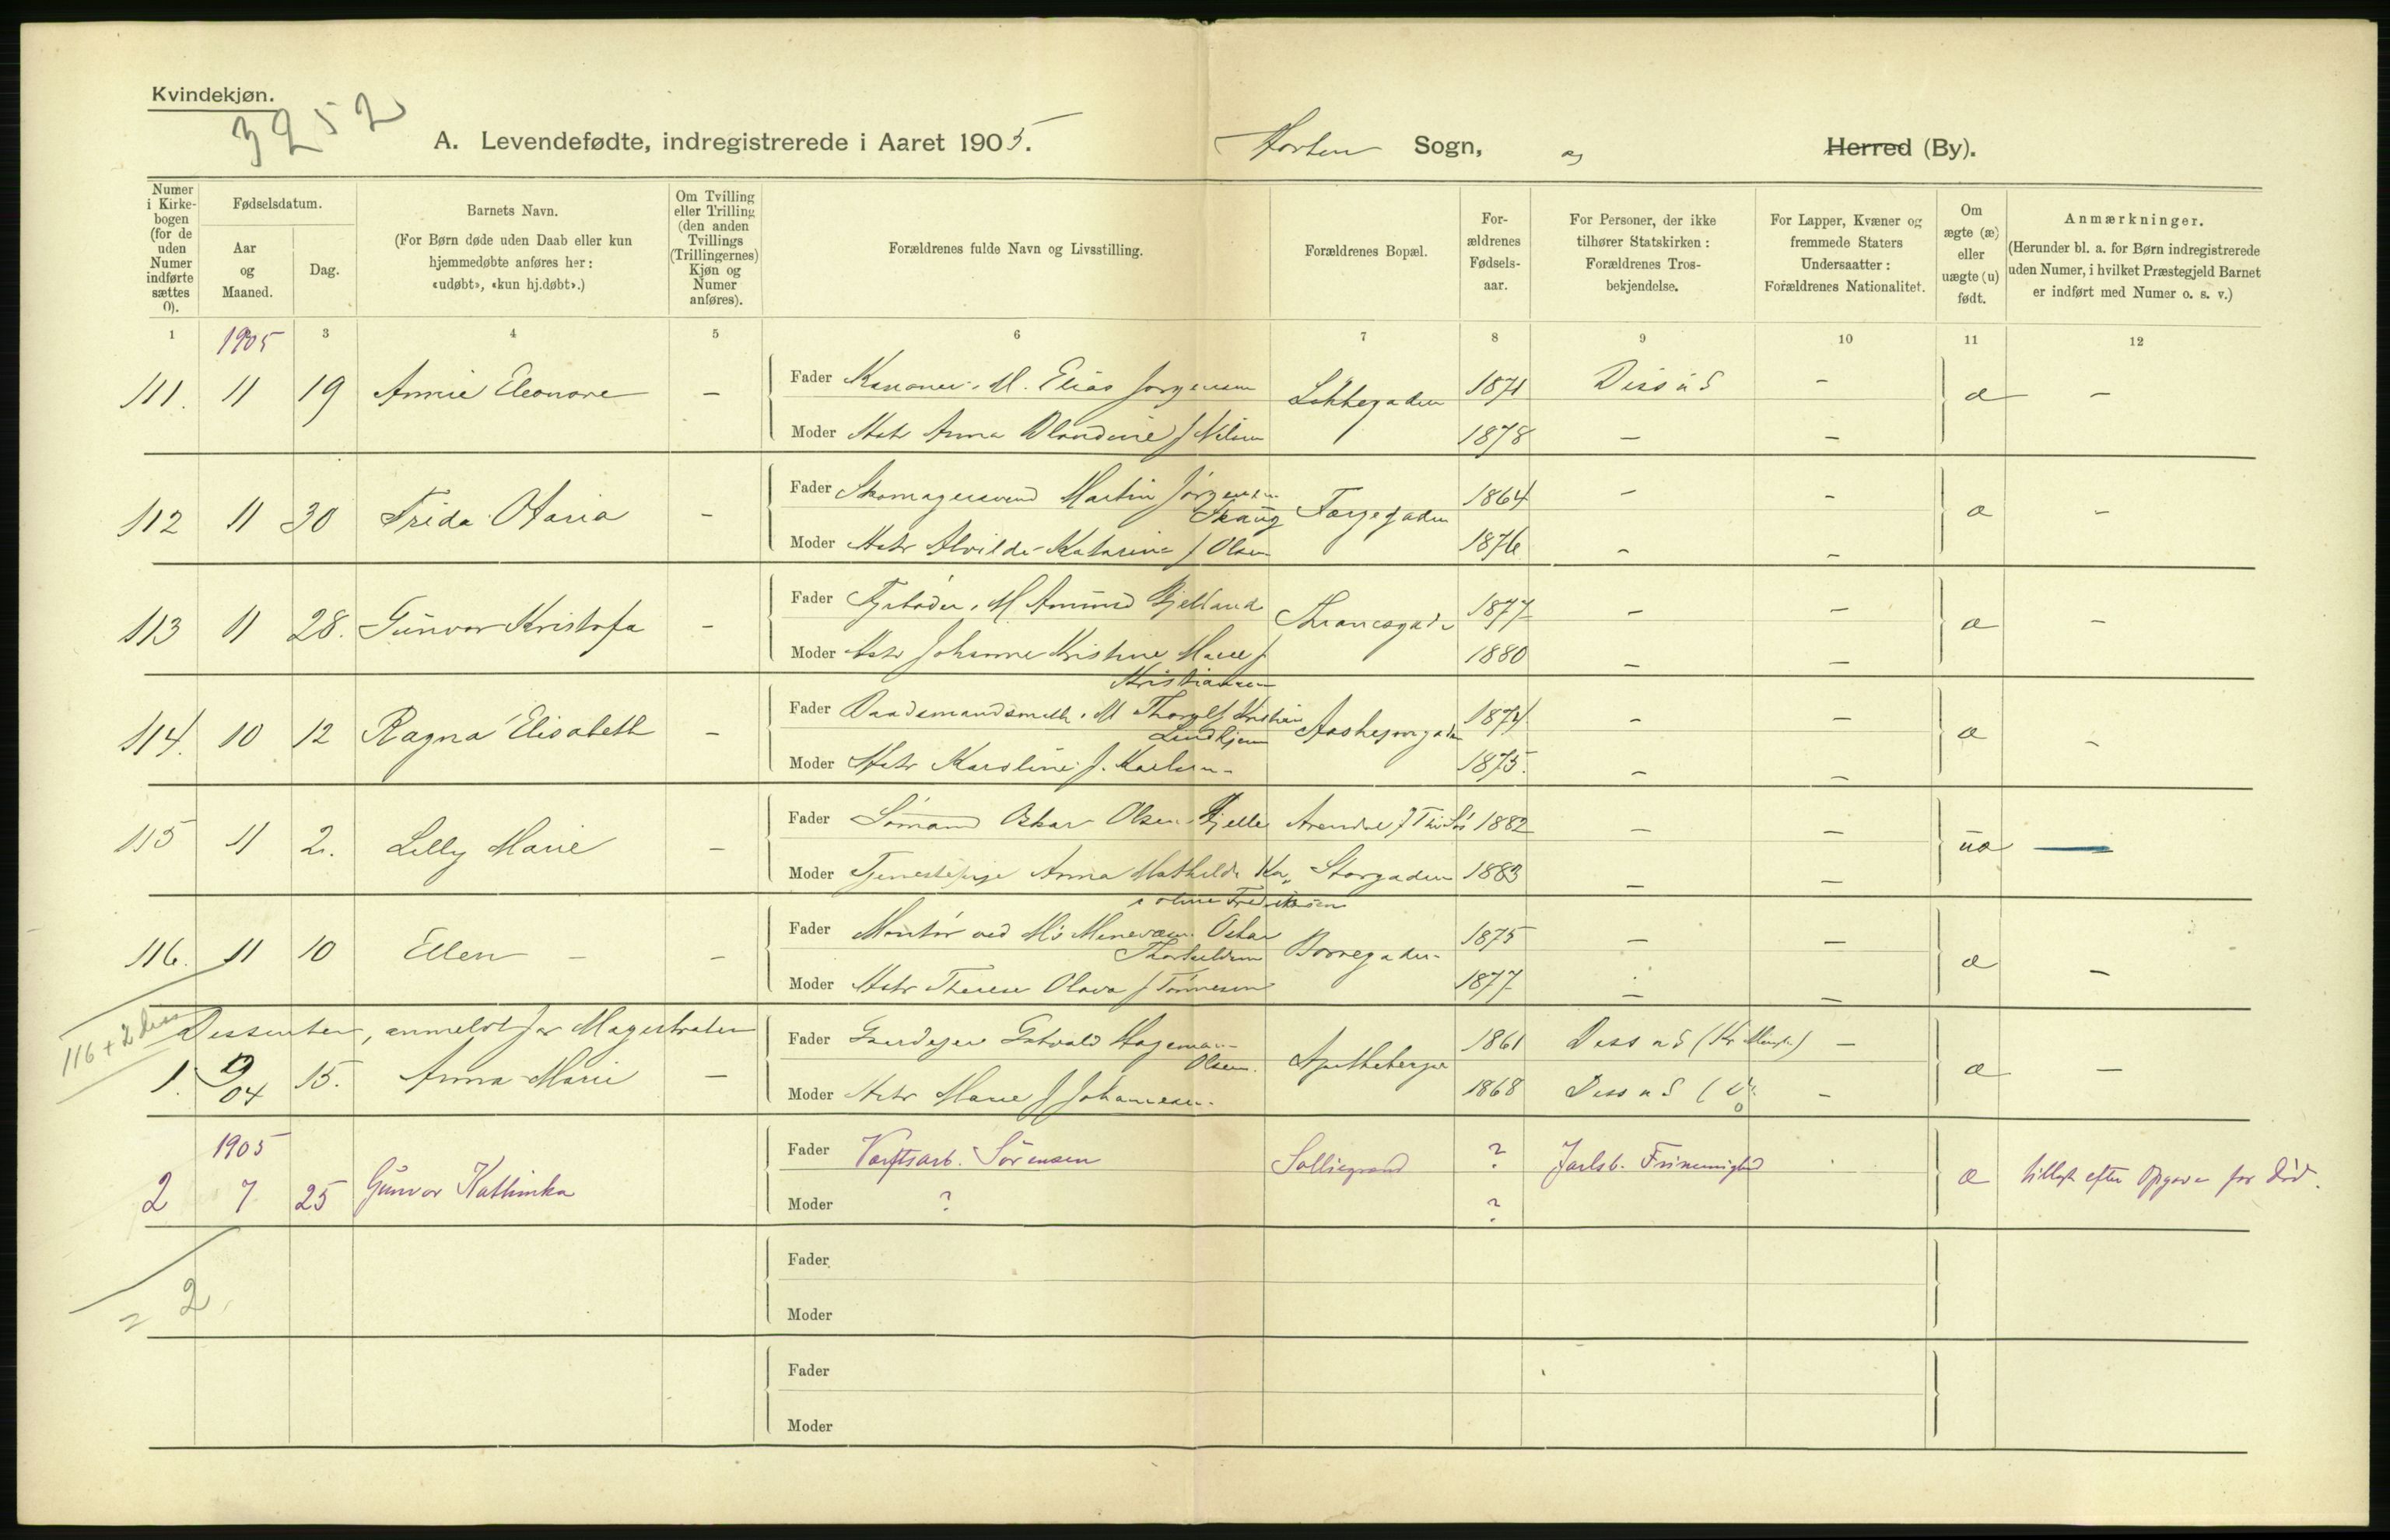 Kvindekjøn.
3252
A. Levendefødte, indregistrerede i Aaret 1905.
Horten Sogn, og Herred (By).
Numer i Kirkebogen (for de uden Numer indførte sættes 0).
Fødselsdatum.
Aar og Maaned.
Dag.
Barnets Navn.
(For Børn døde uden Daab eller kun hjemmedøbte anføres her: «udøbt», «kun hj.døbt».)
Om Tvilling eller Trilling (den anden Tvillings (Trillingernes) Kjøn og Numer anføres).
Forældrenes fulde Navn og Livsstilling.
Forældrenes Bopæl.
Forældrenes Fødselsaar.
For Personer, der ikke tilhører Statskirken: Forældrenes Trosbekjendelse.
For Lapper, Kvæner og fremmede Staters Undersaatter: Forældrenes Nationalitet.
Om ægte (æ) eller uægte (u) født.
Anmærkninger.
(Herunder bl. a. for Børn indregistrerede uden Numer, i hvilket Præstegjeld Barnet er indført med Numer o. s. v.)
1 1905 3 4 5 6 7 8 9 10 11 12
111. 11 19 Annie Eleonore – Fader Kanoner. M. Elias Jorgensen Løkkegaden 1871 Diss – æ –
Moder Hstr Anna Blondine f Nilsen 1878 – –
112 11 30 Frida Maria – Fader Skomagersvend Martin Jörgensen Skaug Færgegaden 1864 – – æ –
Moder Hstr Alvilde Katarine f Olsen 1876 – –
113 11 28. Gunvor Kristofa – Fader Fyrbøder. M Amund Bjelland Thranesgade 1877 – – æ –
Moder Hstr Johanne Kristine Marie f Kristiansen 1880 – –
114. 10 12 Ragna Elisabeth – Fader Baadsmandsmath. M Thorulf Kristian Lindkjenn 1874 – – æ –
Moder Hstr Karoline f. Karlsen 1875. – –
115 11 2. Lilly Marie – Fader Sömand Oskar Olsen Bjelle Arendal 1882 – – uæ –
Moder Tjenestepige Anna Mathilde Karoline Fredriksen Storgaden 1883 – –
116. 11 10 Ellen – – Fader Montör ved Ms Minevæsen Oskar Thorkildsen Borregaden 1875 – – æ –
Moder Hstr Therese Olava f Tönnesen 1877 – –
116 + 2 diss
Dissenter, anmeldt for Magistraten
1. 9/04 15. Anna Marie – Fader Gaardejer Gotvald Hageman Olsen. Apothebergr 1861 Diss – æ –
Moder Hstr Marie f Johannesen 1868 Diss –
1905
2 7 25 Gunvor Kathinka Fader Værftsarb. Sörensen Solliegrand ? Jarlsb. Frimenighed æ tillagt efter Opgave for död.
Moder ? ?
= 2.
Fader
Moder
Fader
Moder